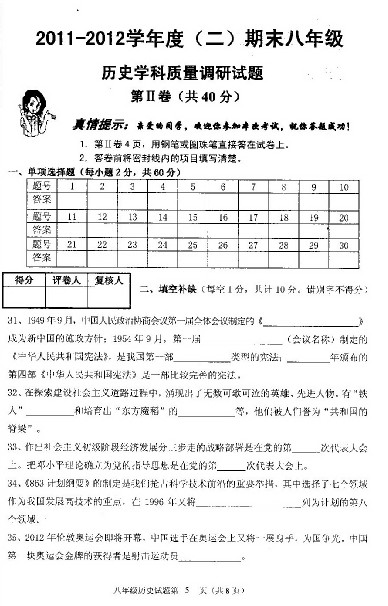 2011-2012学年度（二）期末八年级
历史学科质量调研试题
第Ⅱ卷（共40分）
真情提示：亲爱的同学，欢迎你参加本次考试，祝你答题成功！
1. 第Ⅱ卷4页，用钢笔或圆珠笔直接答在试卷上。
2. 答卷前将密封线内的项目填写清楚。
一、单项选择题（每小题2分，共60分）
题号 1 2 3 4 5 6 7 8 9 10
答案
题号 11 12 13 14 15 16 17 18 19 20
答案
题号 21 22 23 24 25 26 27 28 29 30
答案
得分 评卷人 复核人
二、填空补缺（每空1分，共计10分，错别字不得分）
31、1949年9月，中国人民政治协商会议第一届全体会议制定的《
》
成为新中国的施政方针；1954年9月，第一届（会议名称）制定的
《中华人民共和国宪法》，是我国第一部类型的宪法；年颁布的
第四部《中华人民共和国宪法》是一部比较完善的宪法。
32、在探索建设社会主义道路过程中，涌现出了无数可歌可泣的英雄、先进人物。有“铁
人”和培育出“东方魔稻”的等，他们被人们誉为“共和国的
脊梁”。
33、作出社会主义初级阶段经济发展分三步走的战略部署是在党的第次代表大会
上。把邓小平理论确立为党的指导思想是在党的第次代表大会上。
34、《863计划纲要》的制定是我们抢占科学技术前沿的重要举措，其中选择了七个领域
作为我国发展高技术的重点，在1996年又将列为计划的第八
个领域。
35、2012年伦敦奥运会即将开幕，中国选手在奥运会上又将一展身手，为国争光。中国
第一块奥运会金牌的获得者是射击运动员。
八年级历史试题第 5 页（共8页）